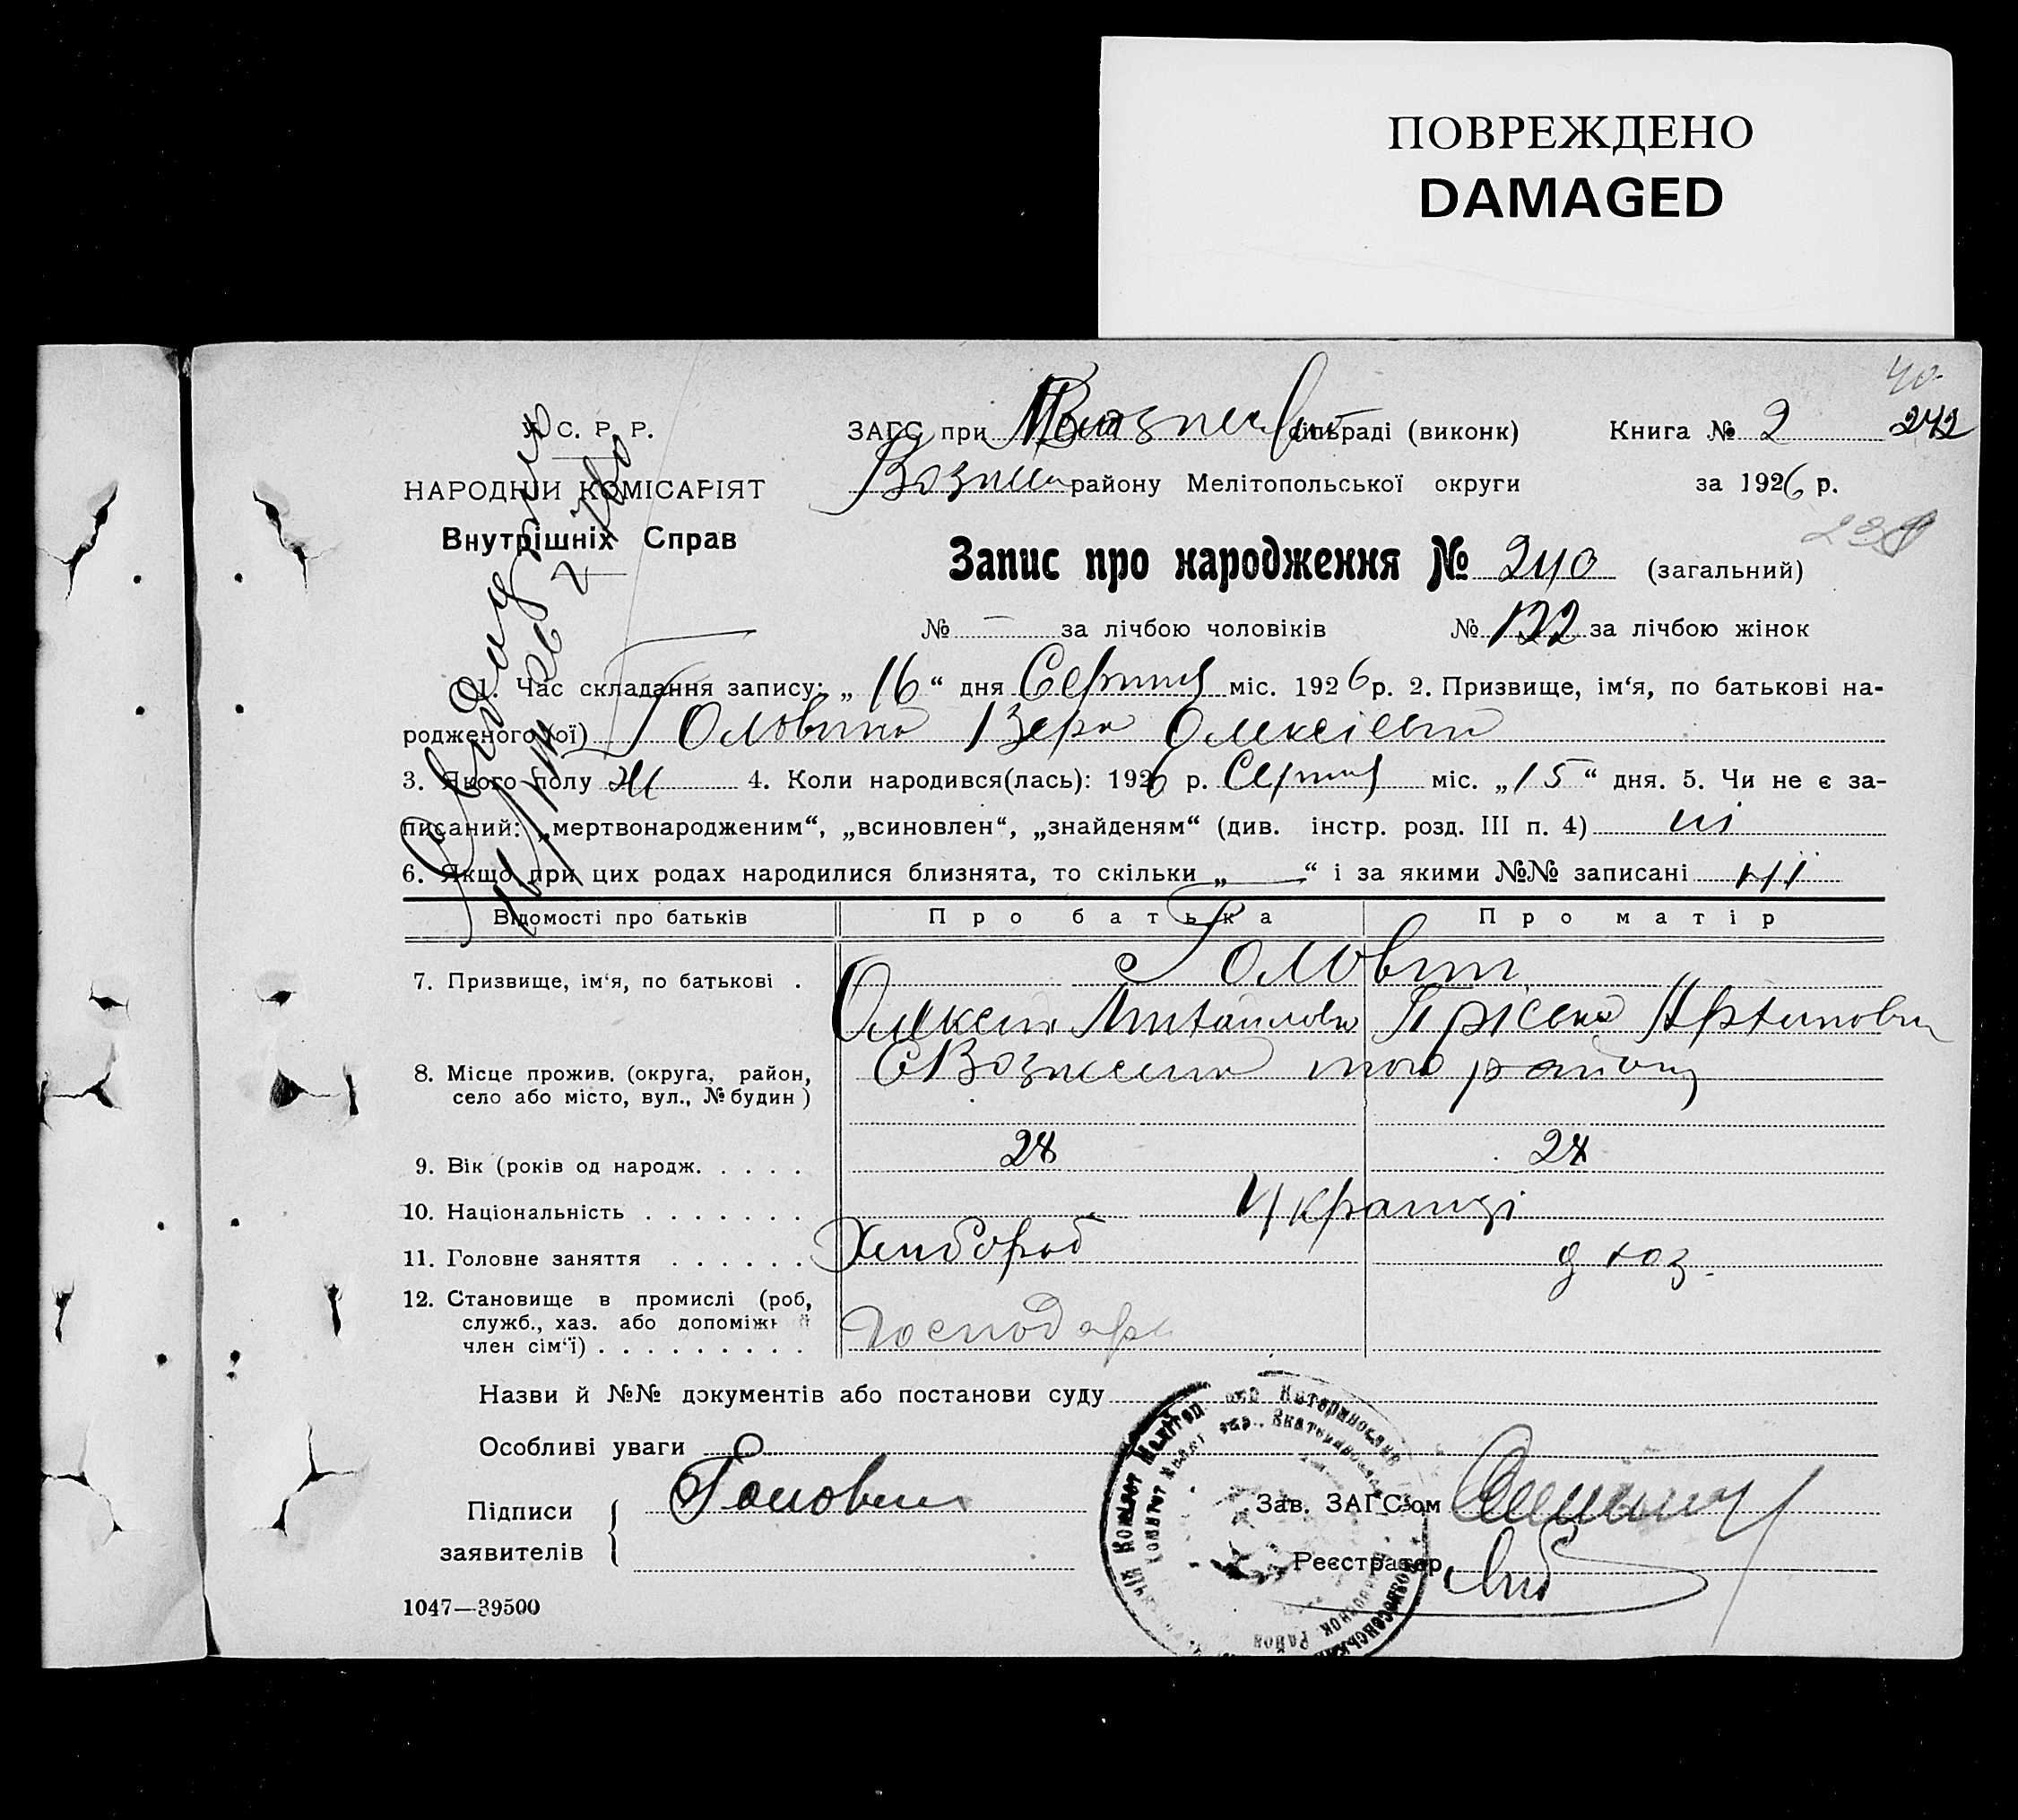 ПОВРЕЖДЕНО
DAMAGED
40
У. С. Р. Р.
ЗАГС при сільраді (виконк) Книга № 2 242
НАРОДНІЙ КОМІСАРІЯТ
Возне району Мелітопольської округи за 1926 р.
Внутрішніх Справ
Запис про народження № 240 (загальний)
№ — за лічбою чоловіків № 122 за лічбою жінок
1. Час складання запису: „ 16 “ дня Серпня міс. 1926 р. 2. Призвище, ім‘я, по батькові на-
родженого (ої) Головина Вера Олексіевна
3. Якого полу ж 4. Коли народився(лась): 1926 р. Серпня міс. „ 15 “ дня. 5. Чи не є за-
писаний: „мертвонародженим“, „всиновлен“, „знайденям“ (див. інстр. розд. III п. 4) ні
6. Якщо при цих родах народилися близнята, то скільки „ — “ і за якими №№ записані ні
Відомості про батьків Про батька Про матір
7. Призвище, ім‘я, по батькові . Головин
Олексій Михайлови Прісьна Артимовн
8. Місце прожив. (округа, район,
село або місто, вул., № будин ) С Вознесенка того району
9. Вік (років од народж. . . . . 28
10. Національність . . . . . . . Українці
11. Головне заняття . . . . . . Хлибороб д хоз.
12. Становище в промислі (роб,
служб., хаз. або допоміжн й
член сім‘ї) . . . . . . . . . Господарь
Назви й №№ документів або постанови суду
Особливі уваги
Підписи
заявителів
Головин
Зав. ЗАГС‘ом
Реєстратор
1047—39500